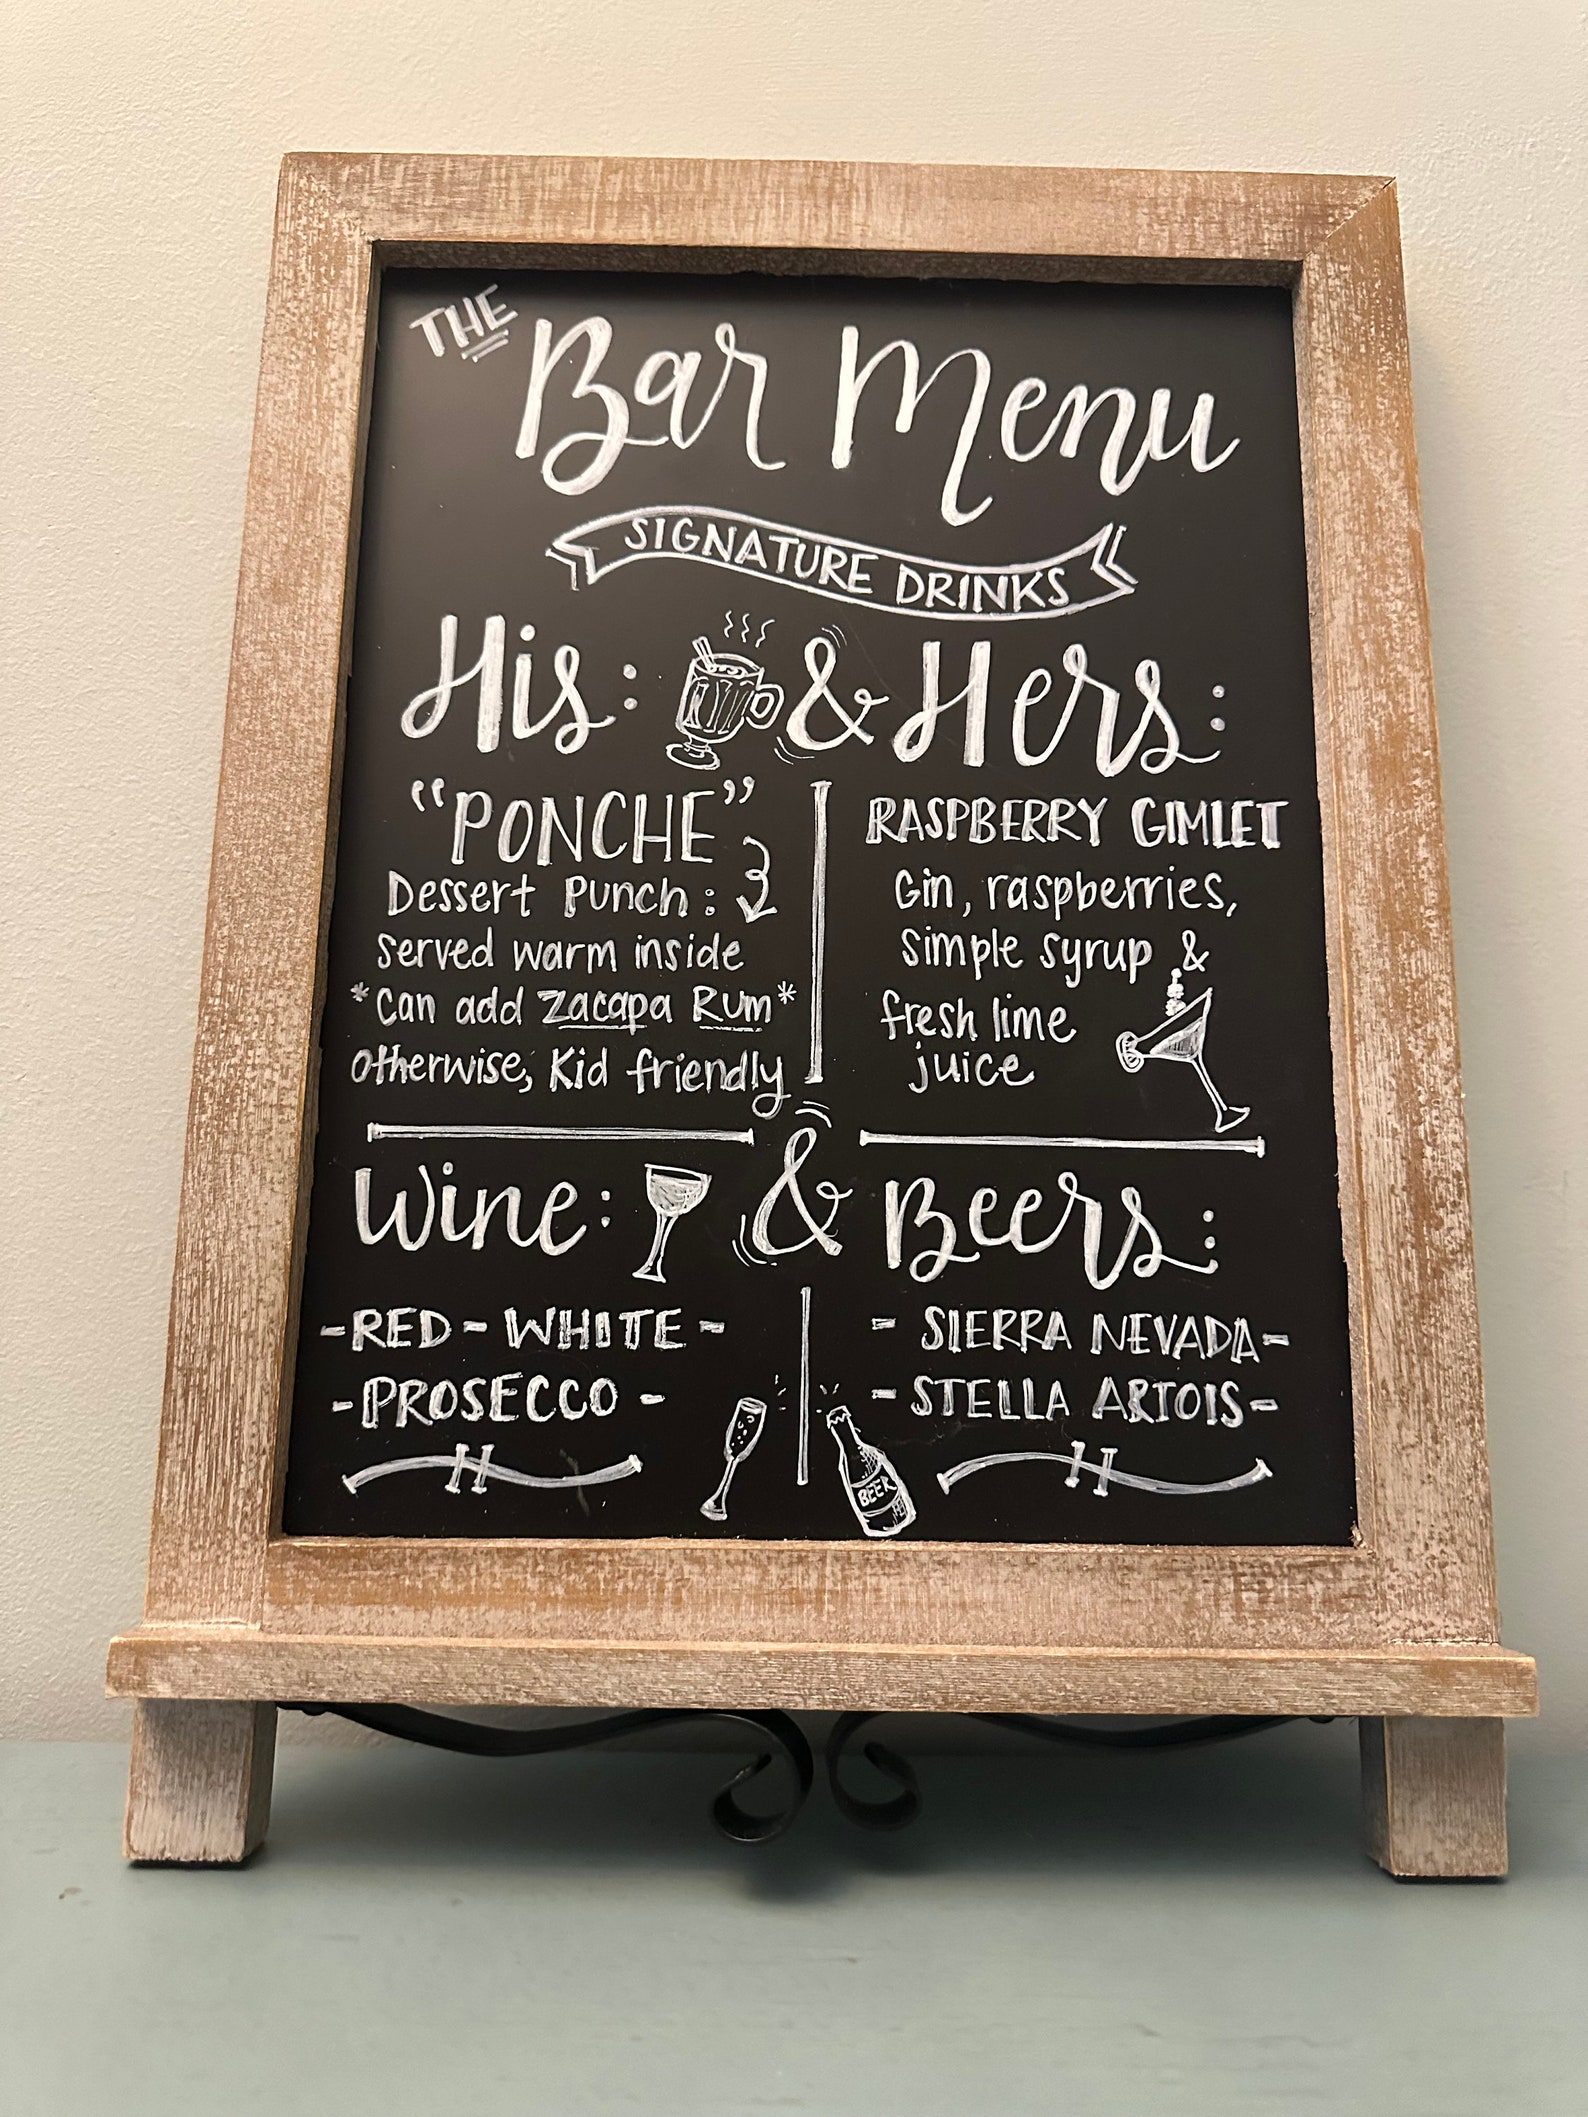 THE Bar Menu
SIGNATURE DRINKS
His: & Hers:
"PONCHE"
Dessert Punch:
served warm inside
*Can add Zacapa Rum*
otherwise, Kid friendly
RASPBERRY GIMLET
Gin, raspberries,
simple syrup &
fresh lime
juice
Wine: & Beers:
-RED-WHITE-
-PROSECCO-
- SIERRA NEVADA-
-STELLA ARTOIS-
BEER